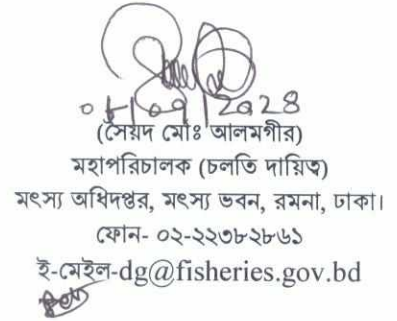 (সৈয়দ মোঃ আলমগীর)
মহাপরিচালক (চলতি দায়িত্ব)
মৎস্য অধিদপ্তর, মৎস্য ভবন, রমনা, ঢাকা।
ফোন- ০২-২২৩৮২৮৬১
ই-মেইল-dg@fisheries.gov.bd